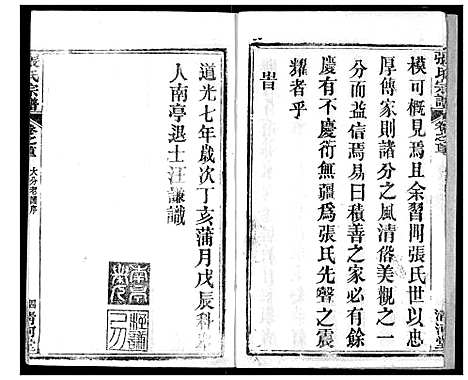 張氏宗譜
卷之首
清河堂
模可槪見焉且余習聞張氏世以忠
厚傳家則諸分之風清俗美觀之一
分而益信焉易曰積善之家必有餘
慶有不慶衍無疆爲張氏先聲之震
耀者乎
旹
道光七年歳次丁亥蒲月戊辰科
人南亭退士汪謙識
南亭
汪謙
張氏宗譜
卷之首
大分老譜序
四
清河堂